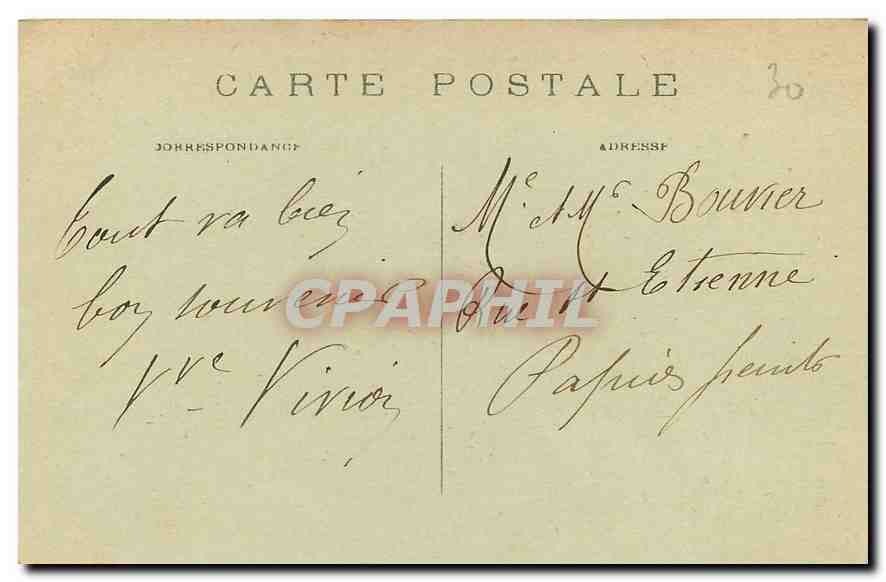 CARTE POSTALE
30
CORRESPONDANCE
ADRESSE
Tout va bien
bon souvenir
Vve Vivion
Me et Me Bouvier
Rue St Etienne
Papiers peints
CPAPHIL